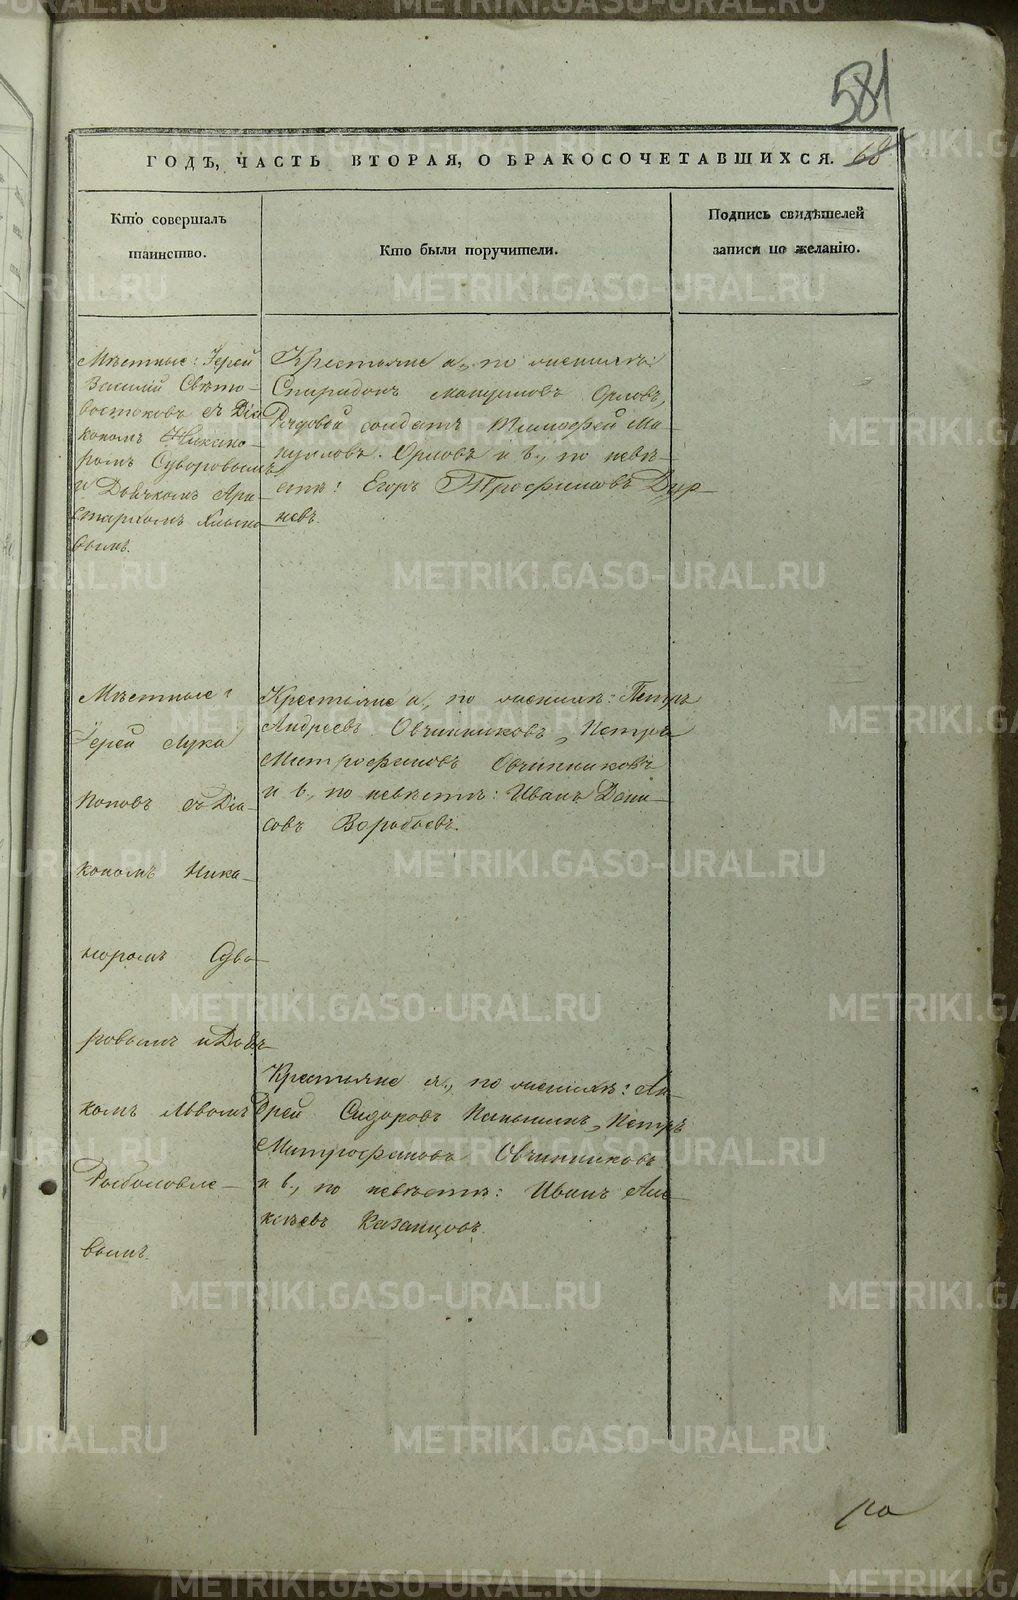 581
ГОДЪ, ЧАСТЬ ВТОРАЯ, О БРАКОСОЧЕТАВШИХСЯ. 68
Кто совершалъ
таинство.
Кто были поручители.
Подпись свидѣтелей
записи по желанію.
Мѣстные: Іерей
Василій Свѣто-
востоковъ съ Діа
кономъ Никано-
ромъ Суворовымъ
и Дьячкомъ Ари-
стархомъ
вымъ.
Крестьяне а., по женихѣ:
Спиридонъ Орловъ,
Рядовой солдатъ Тимофей Ма-
Орловъ и б., по невѣ-
стѣ: Егоръ Трофимовъ Дур-
невъ.
Мѣстные:
Іерей Лука
Поповъ съ Діа-
кономъ Ника-
норомъ Суво-
ровымъ и Дьяч-
комъ Львомъ
Рыболовле-
вымъ.
Крестьяне а., по женихѣ: Петръ
Андреевъ Овчинниковъ, Петръ
Митрофановъ Овчинниковъ
и б., по невѣстѣ: Иванъ Дени-
совъ Воробьевъ.
Крестьяне а., по женихѣ: Ан-
дрей Сидоровъ Паньшинъ, Петръ
Митрофановъ Овчинниковъ
и б., по невѣстѣ: Иванъ Але-
ксѣевъ Казанцовъ.
METRIKI.GASO-URAL.RU